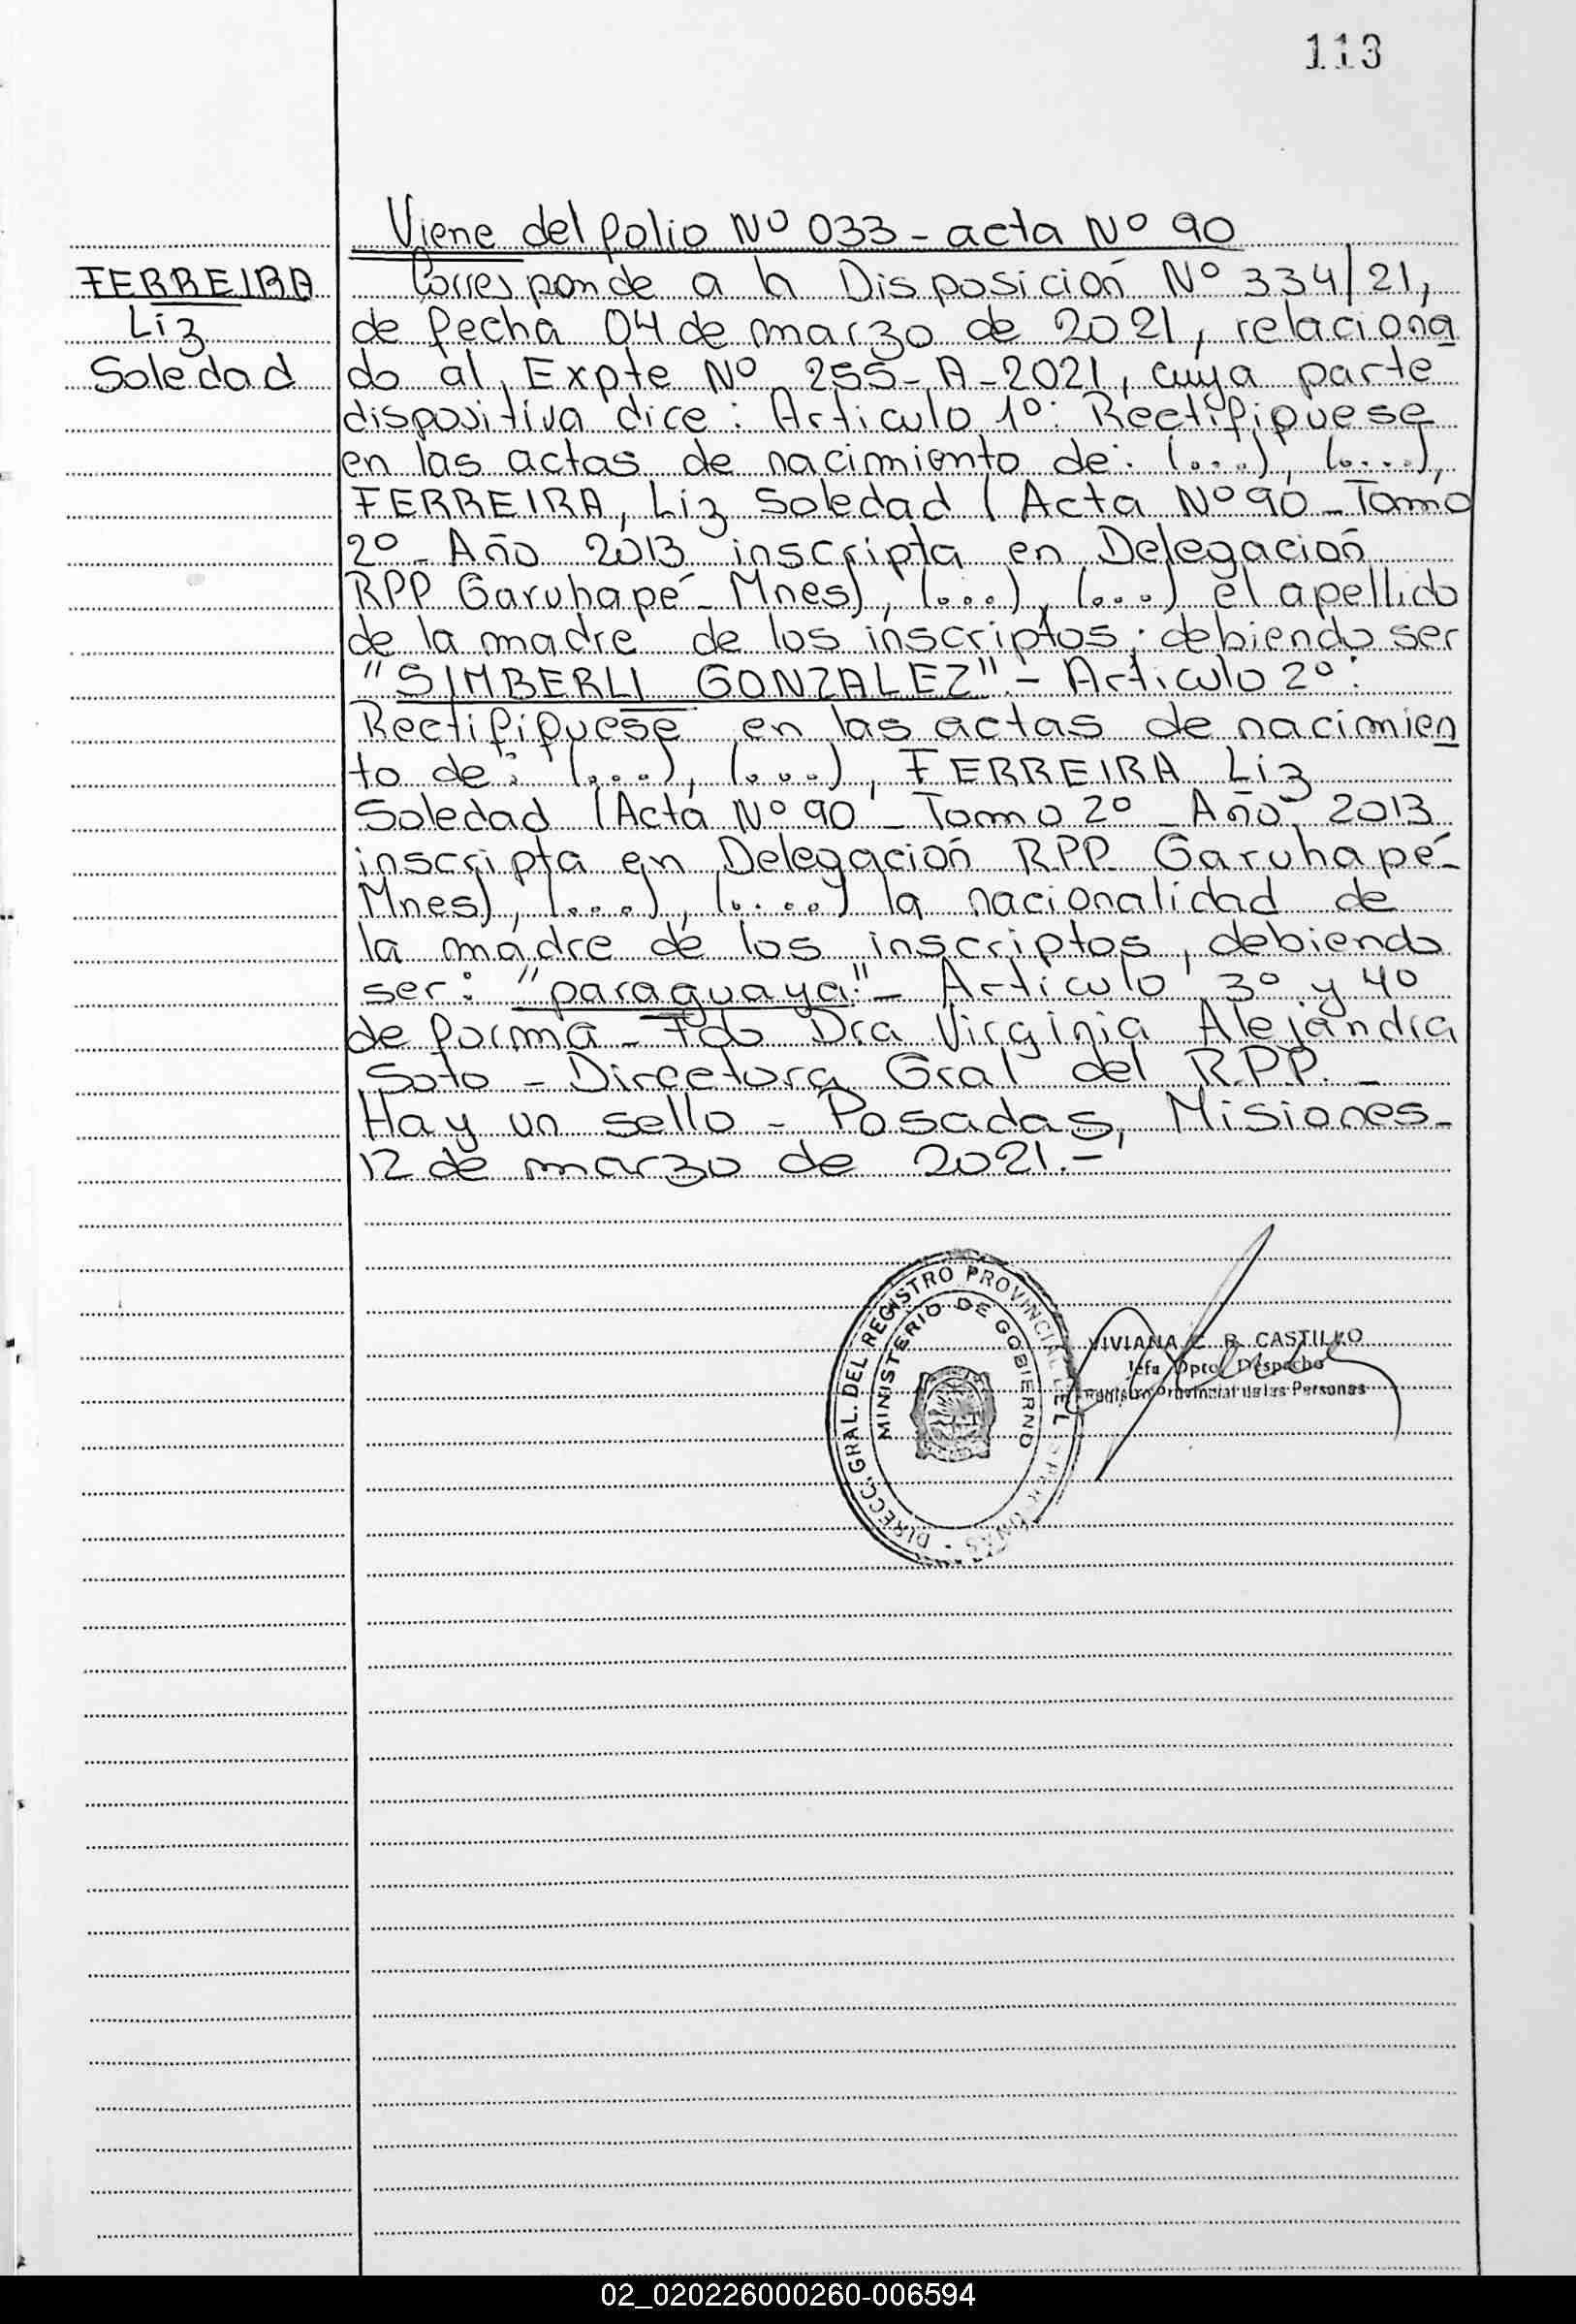 113
Viene del folio Nº 033 - acta Nº 90
FERREIRA
Liz
Soledad
Corresponde a la Disposición Nº 334/21,
de fecha 04 de marzo de 2021, relaciona
do al Expte Nº 255-A-2021, cuya parte
dispositiva dice: Articulo 1º: Rectifiquese
en las actas de nacimiento de: (...), (....),
FERREIRA, Liz Soledad (Acta Nº 90 - Tomo
2º - Año 2013 inscripta en Delegación
RPP Garuhapé - Mnes), (...), (...) el apellido
de la madre de los inscriptos, debiendo ser
"SIMBERLI GONZALEZ".- Articulo 2º:
Rectifiquese en las actas de nacimien
to de: (...), (...), FERREIRA Liz
Soledad (Acta Nº 90 - Tomo 2º - Año 2013
inscripta en Delegación R.P.P. Garuhapé -
Mnes), (...), (....) la nacionalidad de
la madre de los inscriptos, debiendo
ser: "paraguaya".- Articulo 3º y 4º
de forma - Fdo Dra Virginia Alejandra
Soto - Directora Gral del R.P.P. -
Hay un sello - Posadas, Misiones -
12 de marzo de 2021.-
DIRECC. GRAL. DEL REGISTRO PROVINCIAL DE LAS PERSONAS
MINISTERIO DE GOBIERNO
VIVIANA E. R. CASTILLO
Jefa Dpto. Despacho
Registro Provincial de las Personas
02_020226000260-006594